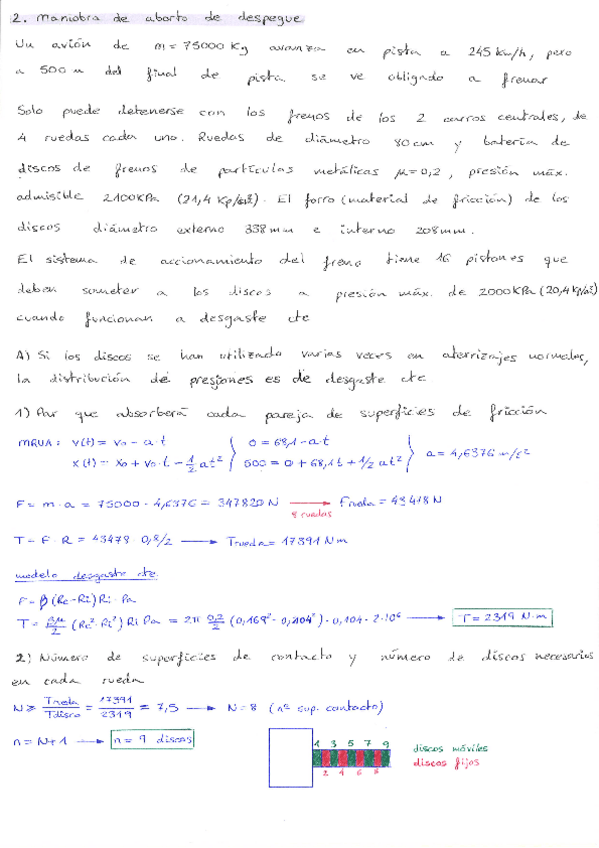 2. Maniobra de aborto de despegue
Un avión de m = 75000 Kg avanza en pista a 245 km/h, pero
a 500 m del final de pista se ve obligado a frenar
Solo puede detenerse con los frenos de los 2 carros centrales, de
4 ruedas cada uno. Ruedas de diámetro 80 cm y batería de
discos de frenos de partículas metálicas μ = 0,2, presión máx.
admisible 2100 KPa (21,4 Kp/cm²). El forro (material de fricción) de los
discos diámetro externo 338 mm e interno 208 mm.
El sistema de accionamiento del freno tiene 16 pistones que
deben someter a los discos a presión máx. de 2000 KPa (20,4 Kg/cm²)
cuando funcionan a desgaste cte
A) Si los discos se han utilizado varias veces en aterrizajes normales,
la distribución de presiones es de desgaste cte
1) Par que absorberá cada pareja de superficies de fricción
MRUA: v(t) = v0 - a·t } 0 = 68,1 - a·t } a = 4,6376 m/s²
x(t) = x0 + v0·t - 1/2 at² } 500 = 0 + 68,1t + 1/2 at²
F = m·a = 75000 · 4,6376 = 347820 N → Frueda = 43478 N
8 ruedas
T = F · R = 43478 · 0,8/2 → Trueda = 17391 Nm
modelo desgaste cte
F = β (Re - Ri) Ri · Pa
T = βμ/2 (Re² - Ri²) Ri Pa = 2π 0,2/2 (0,169² - 0,104²) · 0,104 · 2·10⁶ → T = 2319 N·m
2) Número de superficies de contacto y número de discos necesarios
en cada rueda
N ≥ Trueda/Tdisco = 17391/2319 = 7,5 → N = 8 (nº sup. contacto)
n = N+1 → n = 9 discos
1 3 5 7 9 discos móviles
2 4 6 8 discos fijos